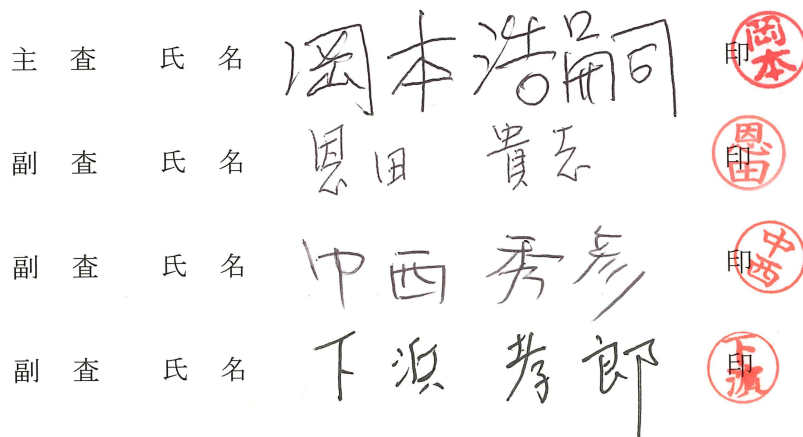 主 査 氏 名 岡本浩嗣 印 岡本
副 査 氏 名 恩田 貴志 印 恩田
副 査 氏 名 中西 秀彦 印 中西
副 査 氏 名 下浜 孝郎 印 下濱